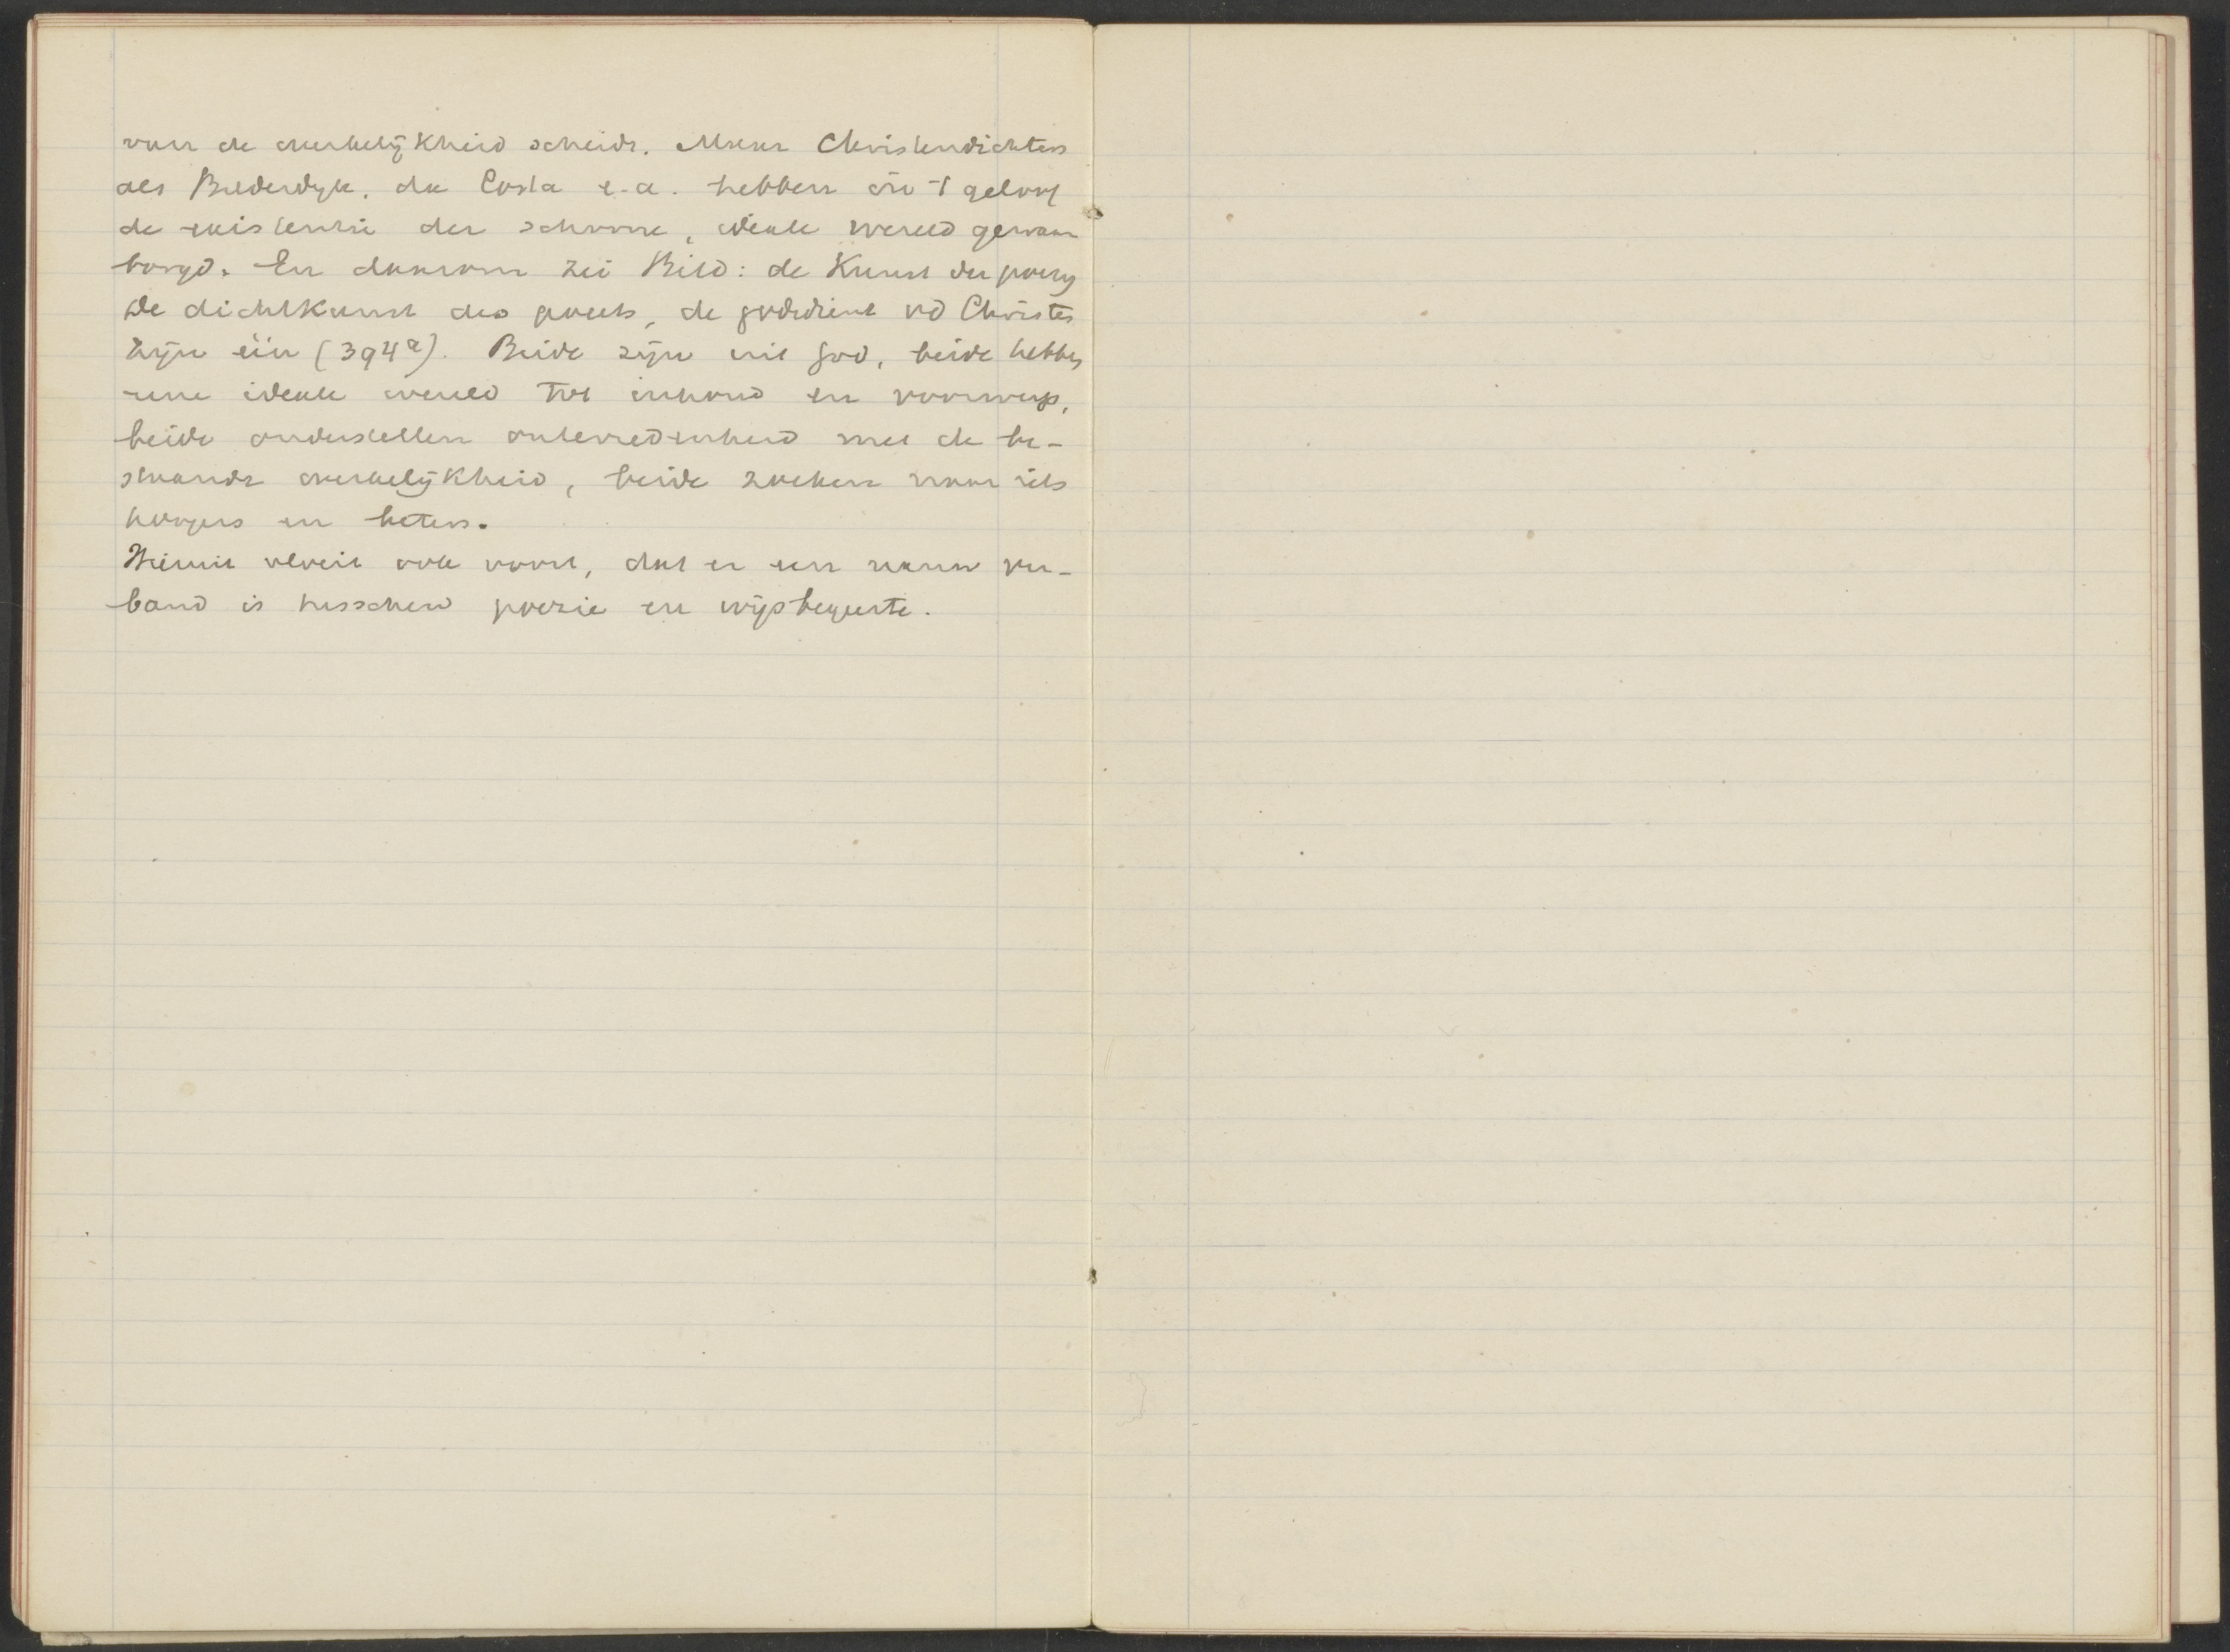 van de werkelijkheid scheidt. Maar Christendichters
als Bilderdijk, da Costa e.a. hebben in 't geloof
de existentie der schoone, ideale wereld gewaar
borgd. En daarom zei Bild: de Kunst der poezy
de dichtkunst des poeets, de godsdienst vd Christen
zijn één (394a). Beide zijn uit God, beide hebben
eene ideale wereld tot inhoud en voorwerp,
beide onderstellen ontevredenheid met de be-
staande werkelijkheid, beide zoeken naar iets
hoogers en beters.
Hieruit vloeit ook voort, dat er een nauw ver-
band is tusschen poezie en wijsbegeerte.